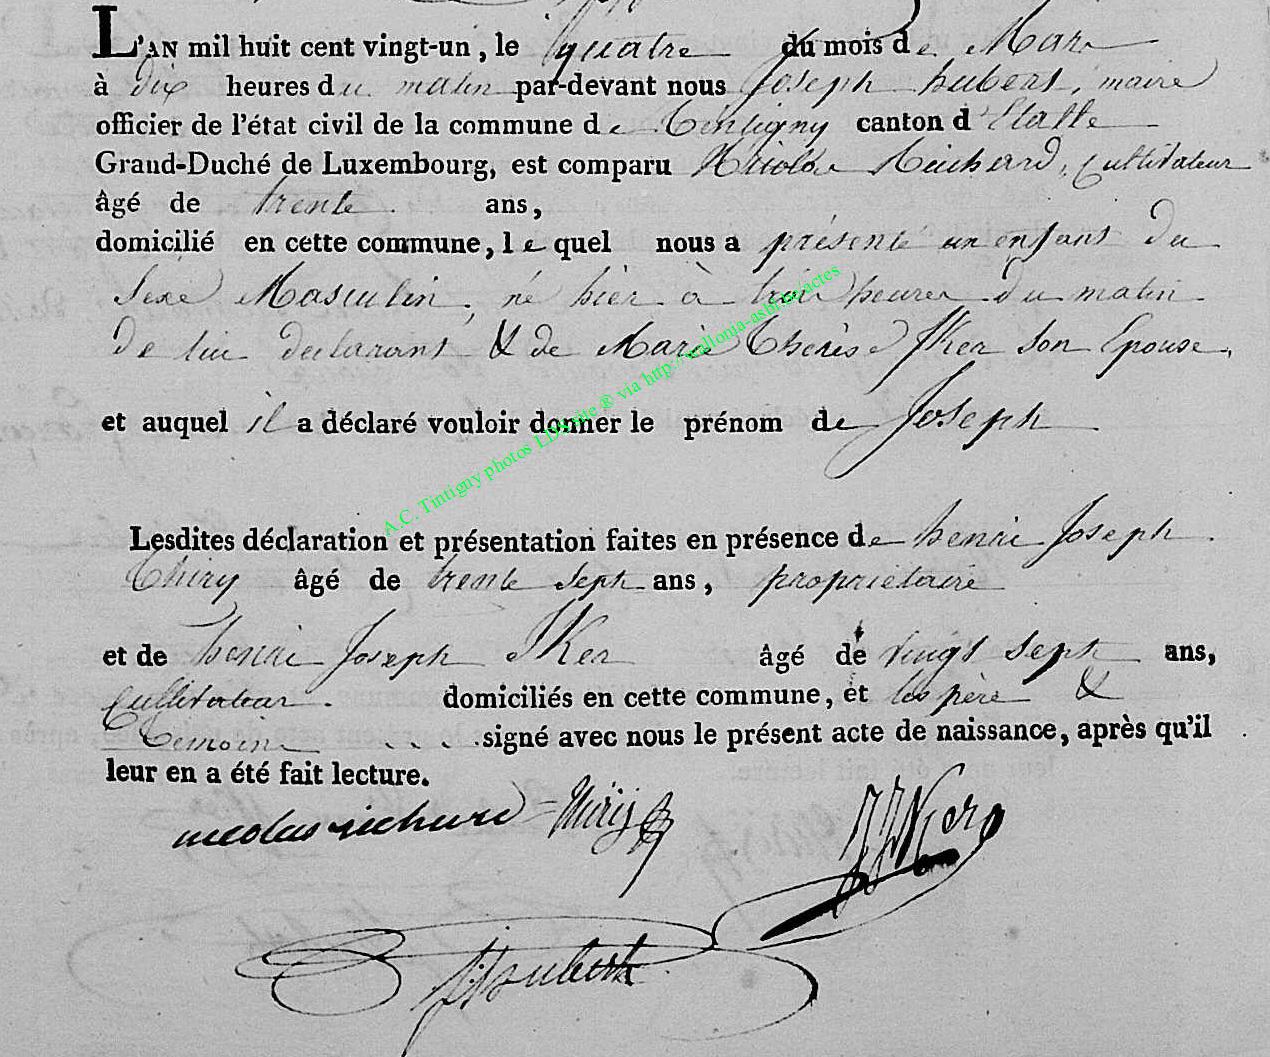 L'AN mil huit cent vingt-un, le quatre du mois de Mars
à dix heures du matin par-devant nous Joseph hubert, maire
officier de l'état civil de la commune de Tintigny canton d'Etalle
Grand-Duché de Luxembourg, est comparu Nicolas Richard, Cultivateur
âgé de trente ans,
domicilié en cette commune, lequel nous a présenté un enfant du
Sexe Masculin, né hier à trois heures du matin
de lui declarant & de Marie Thérèse Iker son Epouse,
et auquel il a déclaré vouloir donner le prénom de Joseph
A.C. Tintigny photos LDS site ® via http://wallonia-asbl.be/actes
Lesdites déclaration et présentation faites en présence de henri Joseph
Thiry âgé de trente sept ans, propriétaire
et de henri Joseph Iker âgé de vingt sept ans,
Cultivateur. domiciliés en cette commune, et les père &
Temoins signé avec nous le présent acte de naissance, après qu'il
leur en a été fait lecture.
nicolas richard Thiry
hubert